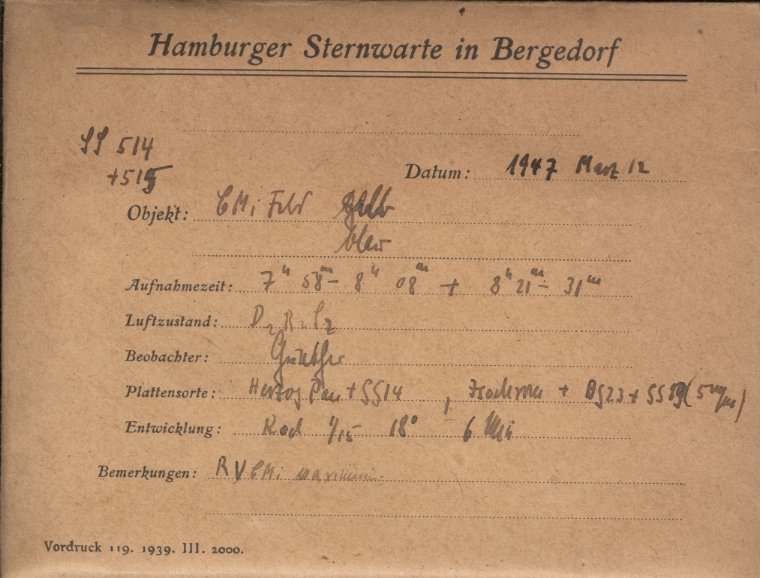 Hamburger Sternwarte in Bergedorf
SS 514
+515
Datum: 1947 März 12
Objekt: CMi Feld gelb
blau
Aufnahmezeit: 7h 58m – 8h 08m + 8h 21m – 31m
Luftzustand: D2 R2 S2
Beobachter:
Plattensorte: Herzog Pan + GG14, + BG23 +
Entwicklung: Rod 1/15 18° 6 Min
Bemerkungen: RV CMi
Vordruck 119. 1939. III. 2000.